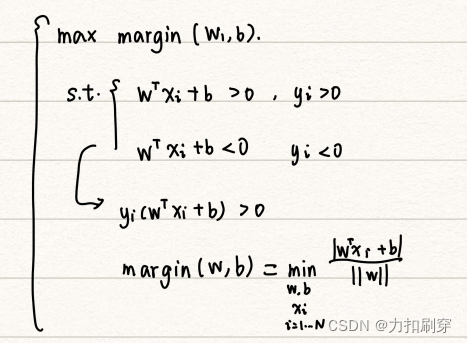 max margin (w,b).
s.t. { wᵀxi+b >0 , yi>0
wᵀxi+b<0 yi<0
yi(wᵀxi+b) >0
margin(w,b) = min |wᵀxi+b| / ||w||
w,b
xi
i=1…N
CSDN @力扣刷穿